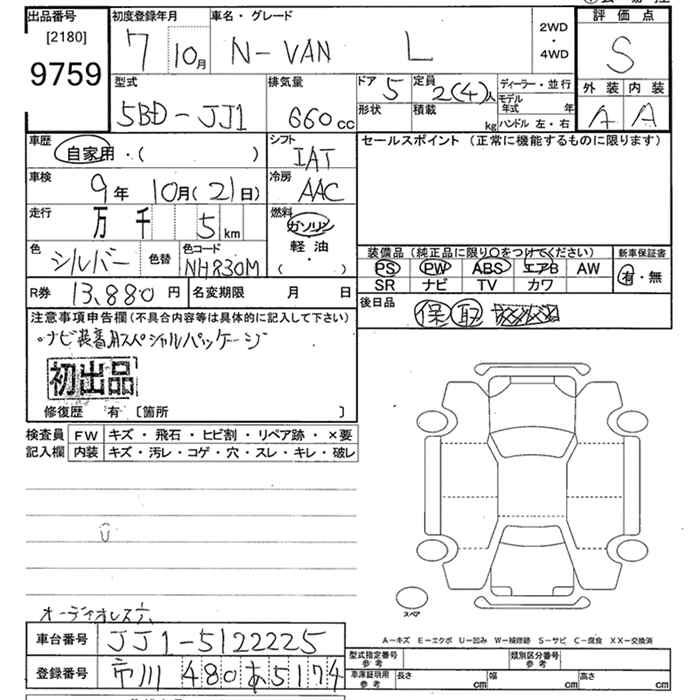 出品番号 初度登録年月 車名・グレード 2WD・4WD 評価点
[2180]
9759 7 10月 N-VAN L S
型式 排気量 ドア 5 定員 2(4)人 ディーラー・並行 外装 内装
5BD-JJ1 660cc 形状 積載 kg モデル年式 年 A A
ハンドル 左・右
車歴 シフト セールスポイント (正常に機能するものに限ります)
自家用・( ) IAT
車検 9年 10月(21日) 冷房 AAC
走行 万 千 5 km 燃料 ガソリン
軽油・( )
色 シルバー 色替 色コード NH830M
装備品(純正品に限り○をつけてください) 新車保証書
PS PW ABS エアB AW 有・無
SR ナビ TV カワ
R券 13,880円 名変期限 月 日 後日品 保 取
注意事項申告欄(不具合内容等は具体的に記入して下さい)
ナビ装着用スペシャルパッケージ
初出品
修復歴 有 〔箇所 〕
検査員 FW キズ・飛石・ヒビ割・リペア跡・×要
記入欄 内装 キズ・汚レ・コゲ・穴・スレ・キレ・破レ
スペア
オーディオレス穴
A-キズ E-エクボ U-凹み W-補修跡 S-サビ C-腐食 XX-交換済
車台番号 JJ1-5122225
型式指定番号 参考 類別区分番号 参考
登録番号 市川 480 あ 5174
車庫証明用 参考 長さ cm 幅 cm 高さ cm